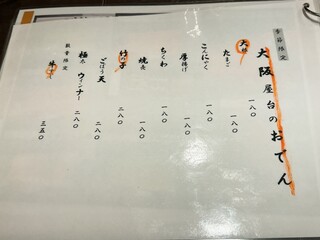 季節限定
大阪屋台のおでん
大根 一八〇
たまご 一八〇
こんにゃく 一八〇
厚揚げ 一八〇
ちくわ 一八〇
焼売 一八〇
竹の子 二八〇
ごぼう天 二八〇
極太ウィンナー 二八〇
数量限定
牛すじ 三五〇